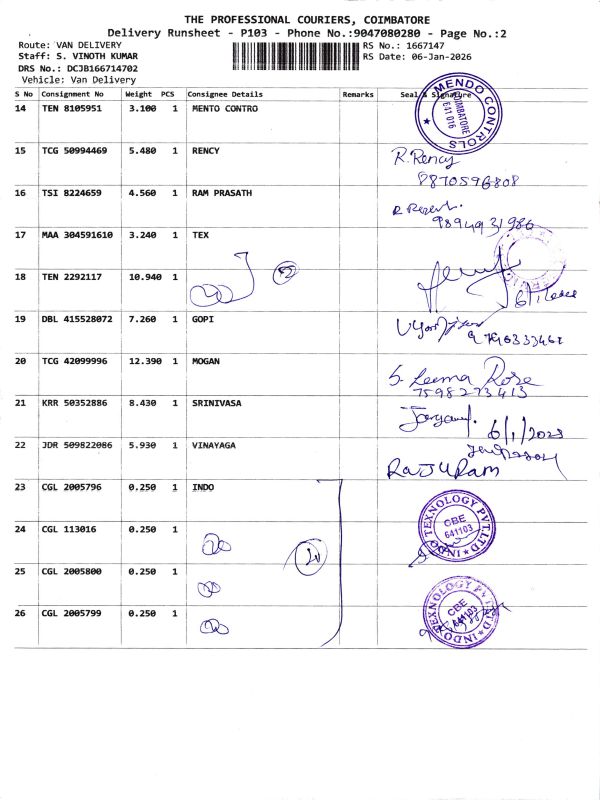 THE PROFESSIONAL COURIERS, COIMBATORE
Delivery Runsheet - P103 - Phone No.:9047080280 - Page No.:2
Route: VAN DELIVERY
RS No.: 1667147
Staff: S. VINOTH KUMAR
RS Date: 06-Jan-2026
DRS No.: DCJB166714702
Vehicle: Van Delivery
S No Consignment No Weight PCS Consignee Details Remarks Seal & Signature
14 TEN 8105951 3.100 1 MENTO CONTRO
MENDO CONTROLS
COIMBATORE
641 016
15 TCG 50994469 5.480 1 RENCY
R. Rency
8870596808
16 TSI 8224659 4.560 1 RAM PRASATH
9894931986
17 MAA 304591610 3.240 1 TEX
18 TEN 2292117 10.940 1
19 DBL 415528072 7.260 1 GOPI
9790333461
20 TCG 42099996 12.390 1 MOGAN
S. Leema Rose
7598273413
21 KRR 50352886 8.430 1 SRINIVASA
6/1/2023
22 JDR 509822086 5.930 1 VINAYAGA
RAJURAM
23 CGL 2005796 0.250 1 INDO
INDO TEXNOLOGY PVT.LTD
CBE
641103
24 CGL 113016 0.250 1
25 CGL 2005800 0.250 1
26 CGL 2005799 0.250 1
INDO TEXNOLOGY PVT.LTD
CBE
641103